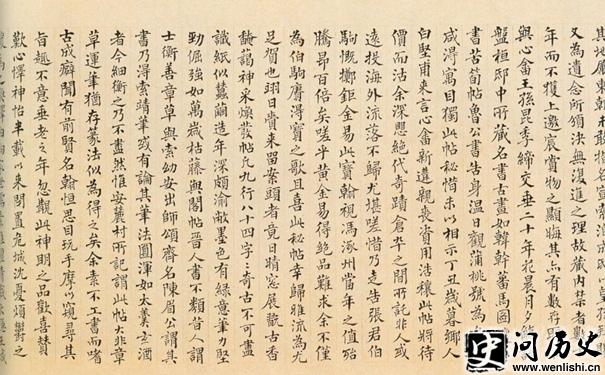 其地屬東朝未敢指名宣索
又為遺念所頒決無復進之理故藏內禁者數
年而不獲上邀宸賞物之顯晦其亦有數存
與心畬王孫昆季締交垂二十年花晨月夕
盤桓邸中所藏名書古畫如韓幹蕃馬圖
書苦筍帖魯公書告身溫日觀蒲桃號為
咸得寓目獨此帖秘惜未以相示丁丑歲暮鄉人
白堅甫來言心畬新遭親喪資用浩穰此帖將待
價而沽余深懼絕代奇蹟倉卒之間所託非人或
遠投海外流落不歸尤堪嗟惜乃走告張君伯
駒慨擲鉅金易此寶翰視馮涿州當年之值殆
騰昂百倍矣嗟乎黃金易得絕品難求余不僅
為伯駒賡得寶之歌且喜此秘帖幸歸雅流為尤
足賀也翌日賷來留案頭者竟日晴窗展翫古香
馣藹神采煥發帖凡九行八十四字奇古不可盡
識紙似蠶繭造年深頗渝敝墨色有綠意筆力堅
勁倔強如萬歲枯藤與閣帖晉人書不類昔人謂
士衡善章草與索幼安出師頌齊名陳眉公謂其
書乃得索靖筆或有論其筆法圓渾如太羹玄酒
者今細衡之乃不盡然惟安麓村所記謂此帖大非章
草運筆猶存篆法似為得之矣余素不工書而嗜
古成癖聞有前賢名翰恒思目玩手摩以窺尋其
旨趣不意垂老之年忽覩此神明之品歡喜贊
歎心怿神怡半載以來閉置危城沈憂煩鬱之
问历史
www.wenlishi.cn